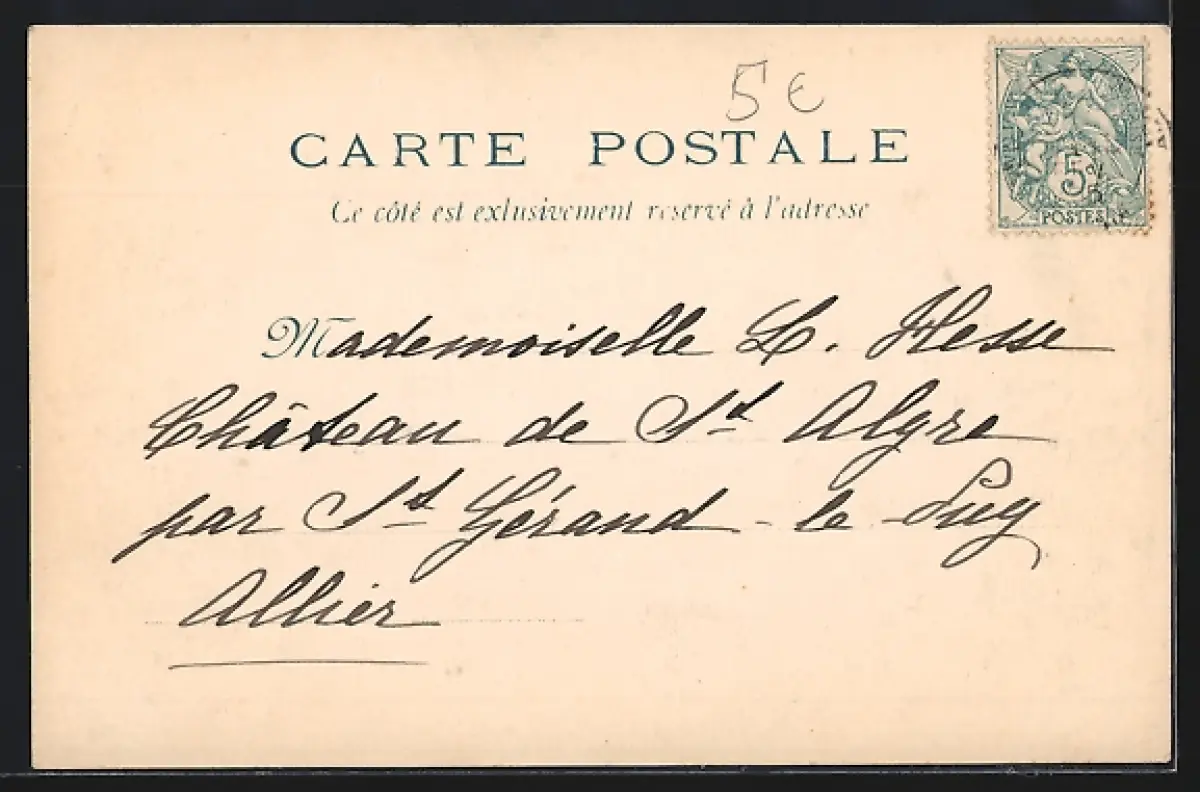 5€
CARTE POSTALE
Ce côté est exlusivement reservé à l'adresse
5
POSTES
Mademoiselle L. Hesse
Château de St Algre
par St Gérand-le-Puy
Allier